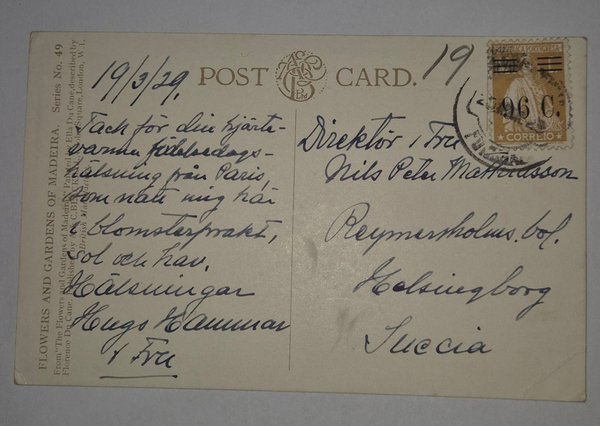 FLOWERS AND GARDENS OF MADEIRA. Series No. 49
From "The Flowers and Gardens of Madeira" Painted by Ella Du Cane, described by
Florence Du Cane. Published by A. & C. Black, Soho Square, London, W 1.
POST CARD.
19
REPUBLICA PORTUGUESA
96 C.
CORREIO
19/3/29.
Tack för din hjärte-
varma födelsedags-
hälsning från Paris,
som nått mig här
i blomsterprakt,
sol och hav.
Hälsningar
Hugo Hammar
& Fru
Direktör & Fru
Nils Peter Mathiasson
Reymersholms. bol.
Helsingborg
Suecia